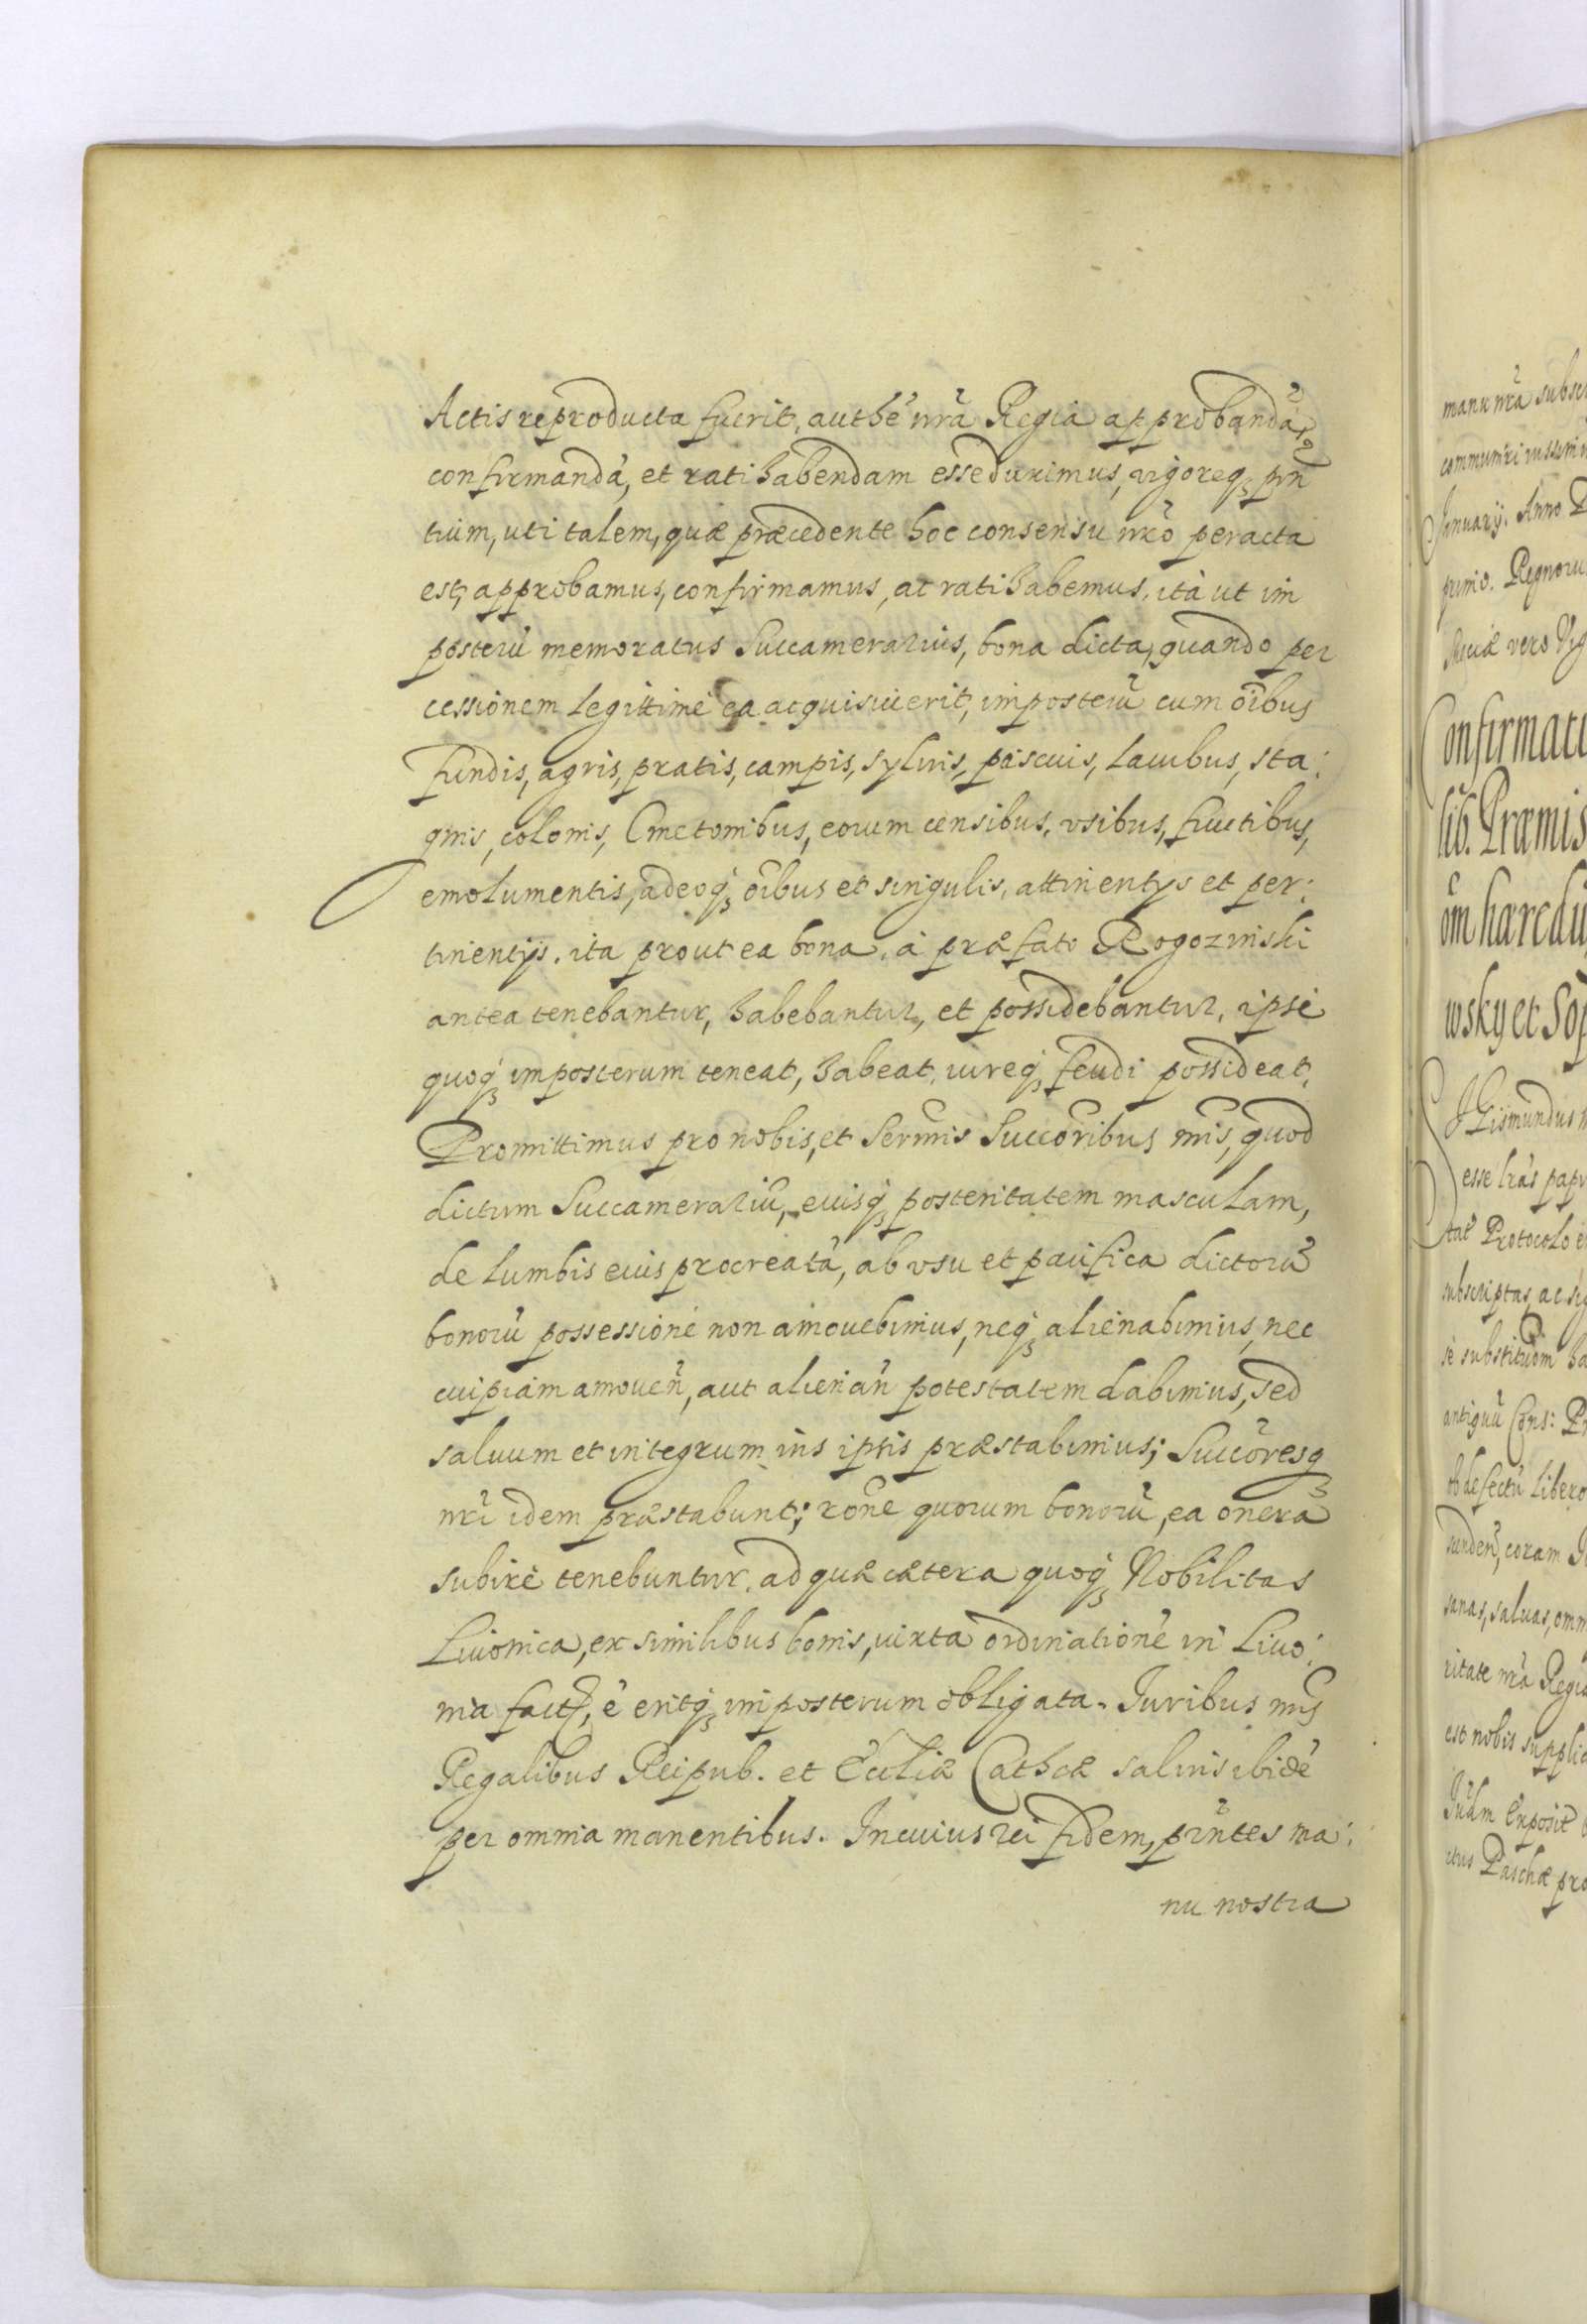 Actis reproducta fuerit, authẽ nr̃a Regia approbandã,
confirmandã, et ratihabendam esse duximus, vigoreq₃ pñ
tium, uti talem, quæ præcedente hoc consensu nr̃o peracta
est, approbamus, confirmamus, ac ratihabemus, ità ut im
posterũ memoratus Succamerarius, bona dicta, quando per
cessionem legittime ea acquisiuerit, imposterũ cum õibus
fundis, agris, pratis, campis, syluis, pascuis, lacubus, sta:
gnis, colonis, Cmetonibus, eorum censibus, vsibus, fructibus,
emolumentis, adeoq₃ õibus et singulis, attinentys et per:
tinentijs, ita prout ea bona, à præfato Rogozinski
antea tenebantur, habebantur, et possidebantur, ipse
quoq₃ imposterum teneat, habeat, iureq₃ feudi possideat.
Promittimus pro nobis, et Serm̃is Succõribus nr̃is, quod
dictum Succamerariũ, eiusq₃ posteritatem masculam,
de lumbis eius procreatã, ab vsu et pacifica dictorũ
bonorũ possessione non amouebimus, neq₃ alienabimus, nec
cuipiam amouen̄, aut alienan̄ potestatem dabimus, sed
saluum et integrum ius ipsis præstabimus; Succõresq₃
nr̃i idem præstabunt; rõne quorum bonorũ, ea onera
subire tenebuntur, ad quæ cætera quoq₃ Nobilitas
Liuonica, ex similibus bonis, iuxta ordinationẽ in Liuo:
nia factã, ẽ eritq₃ imposterum obligata. Iuribus nr̃is
Regalibus Reipub. et Eccliæ Cathcæ saluis ibidẽ
per omnia manentibus. In cuius rei fidem, pr̃ntes ma:
nu nostra
manu nr̃a subsc
Ianuarij. Anno D
primo. Regnoru
Sueciæ vero Vig
Confirmati
lib. Præmis
om̃ hæredu
wsky et Sop
SIGismundus
esse lr̃as papy
Protocolo e
subscriptas, ac sig
antiquũ Cons: Pr
defectũ libero
coram I
sanas, saluas, omn
ritate nr̃a Regia
est nobis supplic
Paschæ pro